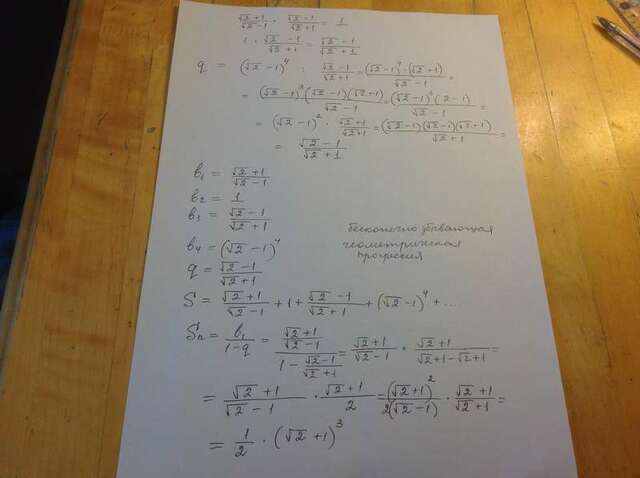 (√2+1)/(√2-1) · (√2-1)/(√2+1) = 1
1 · (√2-1)/(√2+1) = (√2-1)/(√2+1)
q = (√2-1)⁴ : (√2-1)/(√2+1) = (√2-1)⁴·(√2+1)/(√2-1) =
= (√2-1)³(√2-1)(√2+1)/(√2-1) = (√2-1)³(2-1)/(√2-1) =
= (√2-1)² · (√2+1)/(√2+1) = (√2-1)(√2-1)(√2+1)/(√2+1) =
= (√2-1)/(√2+1)
b₁ = (√2+1)/(√2-1)
b₂ = 1
b₃ = (√2-1)/(√2+1)
бесконечно убывающая
геометрическая
прогрессия
b₄ = (√2-1)⁴
q = (√2-1)/(√2+1)
S = (√2+1)/(√2-1) + 1 + (√2-1)/(√2+1) + (√2-1)⁴ + ....
Sₙ = b₁/(1-q) = ((√2+1)/(√2-1))/(1 - (√2-1)/(√2+1)) = (√2+1)/(√2-1) · (√2+1)/(√2+1-√2+1) =
= (√2+1)/(√2-1) · (√2+1)/2 = (√2+1)²/2(√2-1) · (√2+1)/(√2+1) =
= 1/2 · (√2+1)³